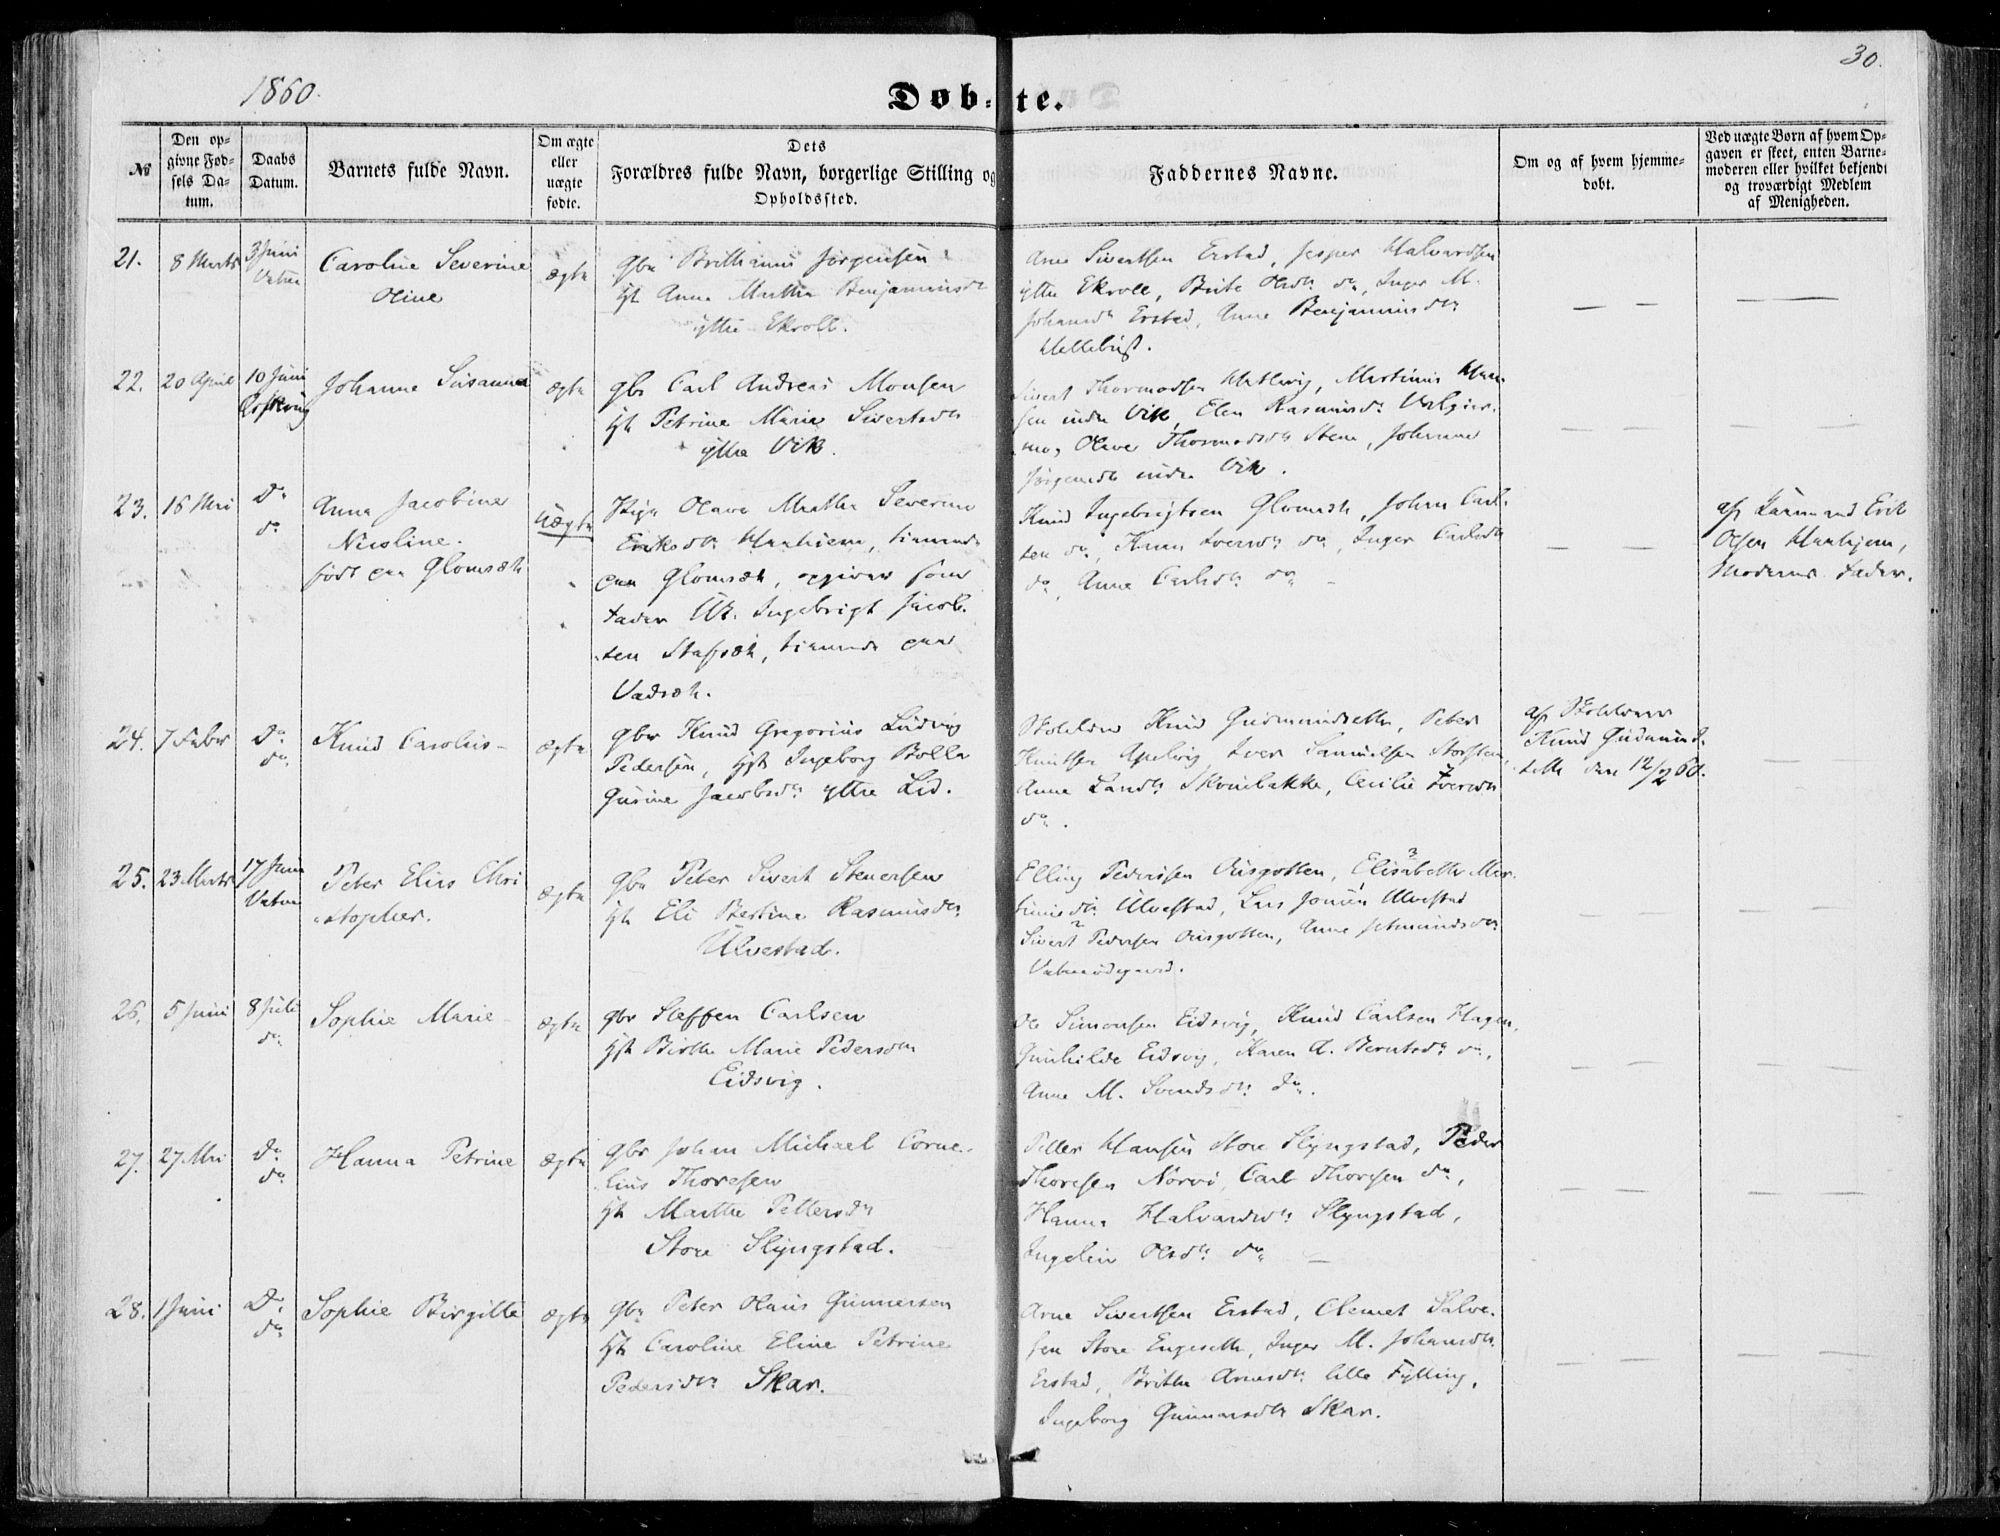 1860.
Døbte.
30.
№
Den opgivne Fødsels Datum.
Daabs Datum.
Barnets fulde Navn.
Om ægte eller uægte fødte.
Dets
Forældres fulde Navn, borgerlige Stilling og
Opholdssted.
Faddernes Navne.
Om og af hvem hjemmedøbt.
Ved uægte Børn af hvem Opgaven er skeet, enten Barnemoderen eller hvilket bekjendt og troværdigt Medlem af Menigheden.
21. 8 Marts 3 Juni Vatne
Caroline Severine
Oline
ægte
Gbr Brithanus Jørgensen
Hst Anna Marthe Benjaminsdr
yttre Ekroll.
Arne Sivertsen Erstad, Jesper Halvardsen
yttre Ekroll, Brite Olsdr do, Inger M.
Johansdr Erstad, Anne Benjaminsdr
Hellebust.
22. 20 April 10 Juni
Johanne Susanna
ægte
Gbr Carl Andreas Monsen
Hst Petrine Marie Sivertsdr
yttre Vik.
Sivert Thormodsen, Martinus
sen indre Vik, Elen Rasmusdr
Olave Thormodsdr Stene, Johanne
Jørgensdr indre Vik.
23. 16 Mai Do do
Anna Jacobine
Nicoline.
født paa Glomsæt
Uægte
Pige Olave Marthe Severine
Eriksdr, tienende
paa Glomsæt, opgiver som
Fader Uk. Ingebrigt Jacob-
sen, tienende paa
Vadsæt.
Knud Ingebrigtsen Glomsæt, Johan Carl-
sen do, Iversdr do, Inger Carlsdr
do, Anne Carlsdr do
af Erik
Olsen,
Moderens Fader.
24. 7 Febr Do do
Knud Carolus
ægte
Gbr Knud Gregorius Ludvig
Pedersen, Hst Ingeborg
Gurine Jacobsdr yttre Lid.
Knud, Peter
Knutsen Apelvig, Iver Samuelsen
Anne Skonebakke, Cecilie Iversdr
do.
af Skolelærer
Knud
den 12/2 60.
25. 23 Marts 17 Juni Vatne
Peter Elias Chri
stopher.
ægte
Gbr Peter Sivert Stenersen
Hst Eli Bertine Rasmusdr
Ulvestad.
Elling Pedersen, Elisabeth Mar-
tinusdr Ulvestad, Lars Ulvestad
Sivert Pedersen, Anne
26. 5 Juni 8 Juli do
Sophie Marie
ægte
Gbr Steffen Carlsen
Hst Birthe Marie Pedersdr
Eidsvig.
Ole Simonsen Eidsvig, Knud Carlsen Hagen,
Gunhilde Eidsvig, Karen A. Berntsdr do,
Anne M. Svendsdr do.
27. 27 Mai Do do
Hanna Petrine
ægte
Gbr Johan Michael Corne-
lius Thoresen
Hst Marthe Pettersdr
Store Slyngstad.
Petter Hansen Store Slyngstad, Peder
Thoresen Nørvø, Carl Thoresen do,
Hanna Halvardsdr Slyngstad,
Ingelin Olsdr do
28. 1 Juni Do do
Sophie Birgitte
ægte
Gbr Peter Olaus Gunnersen
Hst Caroline Eline Petrine
Pedersdr Skar.
Arne Sivertsen Erstad, Clemet Salve-
sen Store Engeseth, Inger M. Johansdr
Erstad, Brithe Arnesdr lille Fylling,
Ingeborg Gunnarsdr Skar.